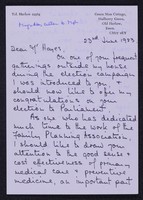 Green Man Cottage,
Mulberry Green,
Old Harlow,
Essex.
CM17 0EY
22nd June 1983
Dear Mr Hayes,
On one of your frequent
gatherings outside my house
during the election campaign
I was introduced to you &
should now like to offer my
congratulations on your
election to Parliament.
As one who has dedicated
much time to the work of the
Family Planning Association
I should like to draw your
attention to the good sense &
cost effectiveness of primary
medical care & preventive
medicine, an important part